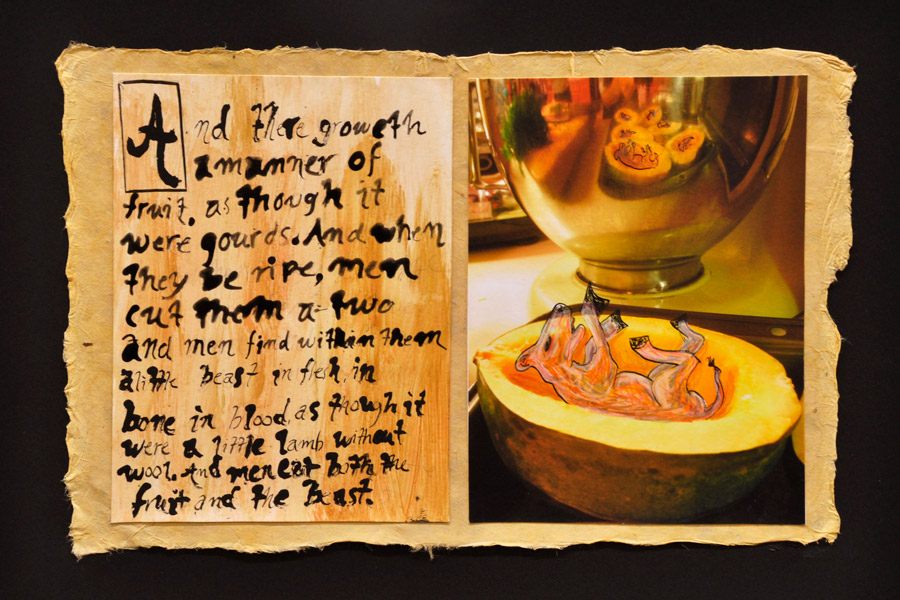 And there groweth
a manner of
fruit, as though it
were gourds. And when
they be ripe, men
cut them a-two
and men find within them
a little beast in flesh, in
bone in blood, as though it
were a little lamb without
wool. And men eat both the
fruit and the beast.